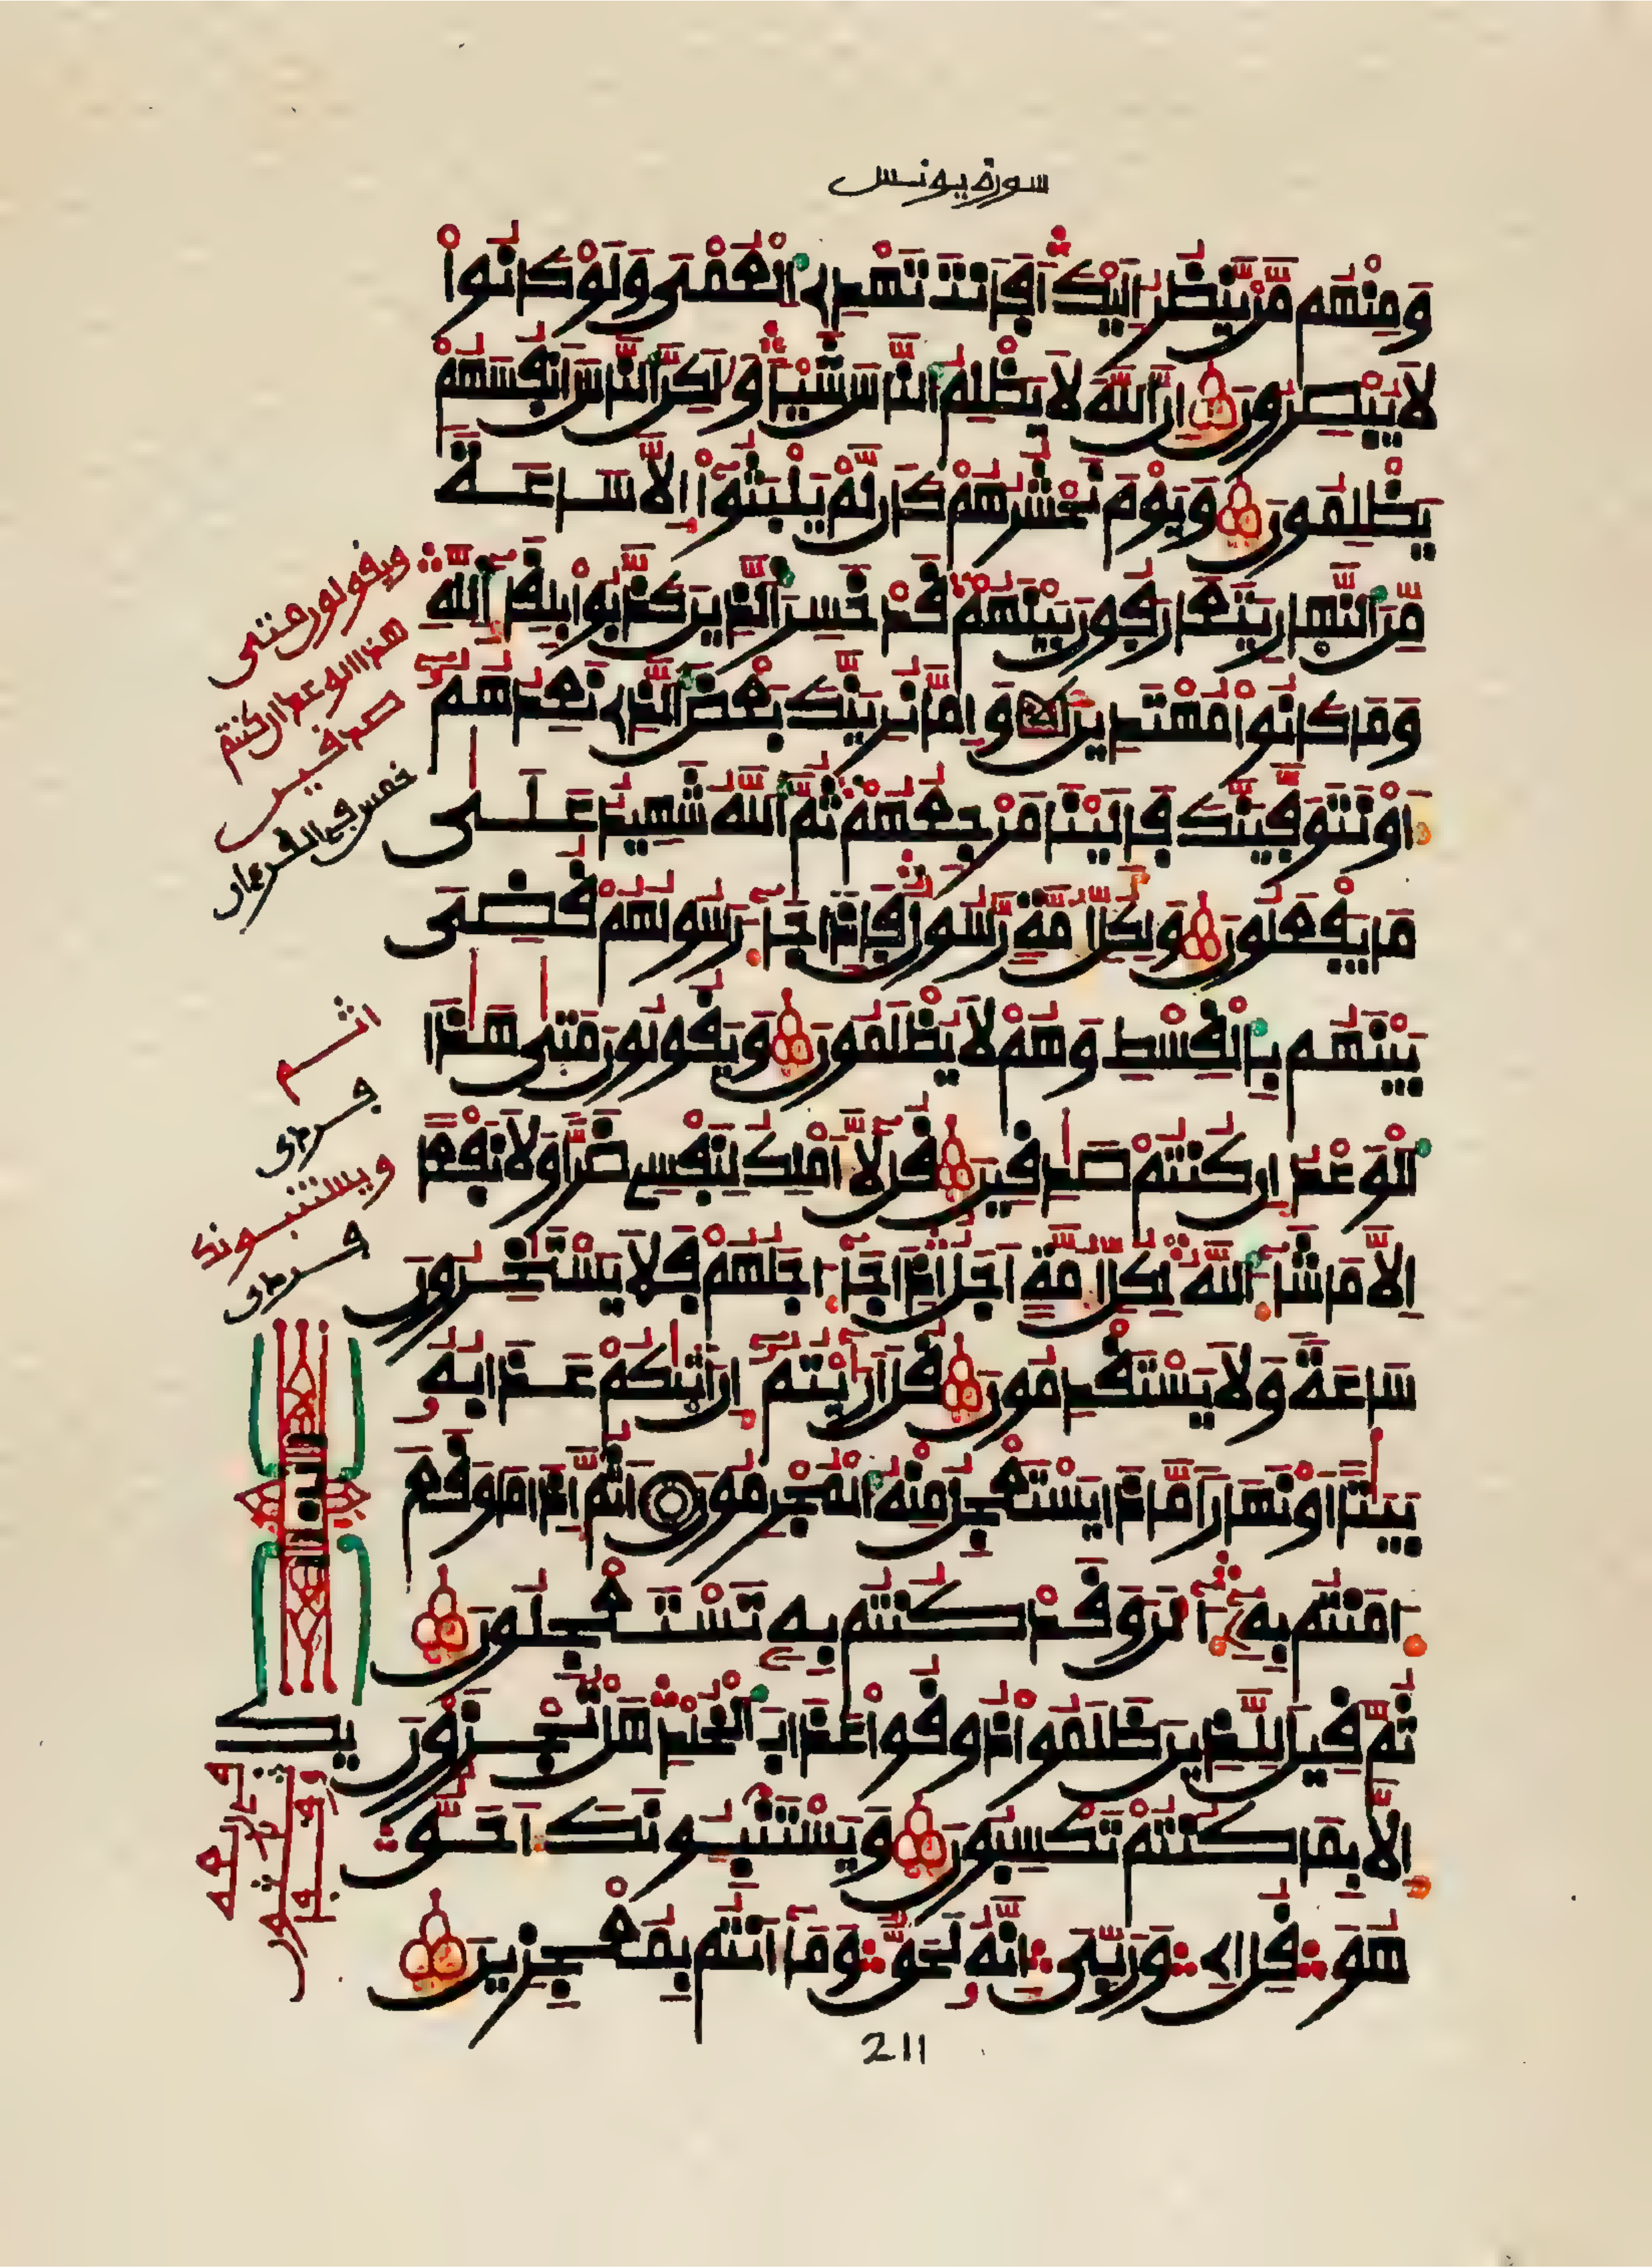 سورة يونس
وَمِنْهُم مَّنْ يَّنظُرُ إِلَيْكَ أَفَأَنتَ تَهْدِي الْعُمْيَ وَلَوْ كَانُواْ
لَا يُبْصِرُونَ إِنَّ اللَّهَ لَا يَظْلِمُ النَّاسَ شَيْئًا وَلَكِنَّ النَّاسَ أَنفُسَهُمْ
يَظْلِمُونَ وَيَوْمَ نَحْشُرُهُمْ كَأَن لَّمْ يَلْبَثُواْ إِلَّا سَاعَةً
مِّنَ النَّهَارِ يَتَعَارَفُونَ بَيْنَهُمْ قَدْ خَسِرَ الَّذِينَ كَذَّبُواْ بِلِقَاءِ اللَّهِ
وَمَا كَانُواْ مُهْتَدِينَ وَإِمَّا نُرِيَنَّكَ بَعْضَ الَّذِي نَعِدُهُمُ
أَوْ نَتَوَفَّيَنَّكَ فَإِلَيْنَا مَرْجِعُهُمْ ثُمَّ اللَّهُ شَهِيدٌ عَلَى
مَا يَفْعَلُونَ وَلِكُلِّ أُمَّةٍ رَّسُولٌ فَإِذَا جَاءَ رَسُولُهُمْ قُضِيَ
بَيْنَهُم بِالْقِسْطِ وَهُمْ لَا يُظْلَمُونَ وَيَقُولُونَ مَتَى هَذَا
الْوَعْدُ إِن كُنتُمْ صَادِقِينَ قُل لَّا أَمْلِكُ لِنَفْسِي ضَرًّا وَلَا نَفْعًا
إِلَّا مَا شَاءَ اللَّهُ لِكُلِّ أُمَّةٍ أَجَلٌ إِذَا جَاءَ اجَلُهُمْ فَلَا يَسْتَخِرُونَ
سَاعَةً وَلَا يَسْتَقْدِمُونَ قُلْ أَرَايْتُمُ إِنْ أَتَيكُمْ عَذَابُهُ
بَيَاتًا أَوْ نَهَارًا مَّاذَا يَسْتَعْجِلُ مِنْهُ الْمُجْرِمُونَ أَثُمَّ إِذَا مَا وَقَعَ
ءَامَنتُم بِهِ ءَالَنَ وَقَدْ كُنتُم بِهِ تَسْتَعْجِلُونَ
ثُمَّ قِيلَ لِلَّذِينَ ظَلَمُواْ ذُوقُواْ عَذَابَ الْخُلْدِ هَلْ تُجْزَوْنَ
إِلَّا بِمَا كُنتُمْ تَكْسِبُونَ وَيَسْتَنبِئُونَكَ أَحَقٌّ
هُوَ قُلْ إِي وَرَبِّيَ إِنَّهُ لَحَقٌّ وَمَا أَنتُم بِمُعْجِزِينَ
ويقولون متى
هذا الوعد إن كنتم
صدقين
خمس في القرءان
اثم
فردى
ويستنبونك
فردى
211